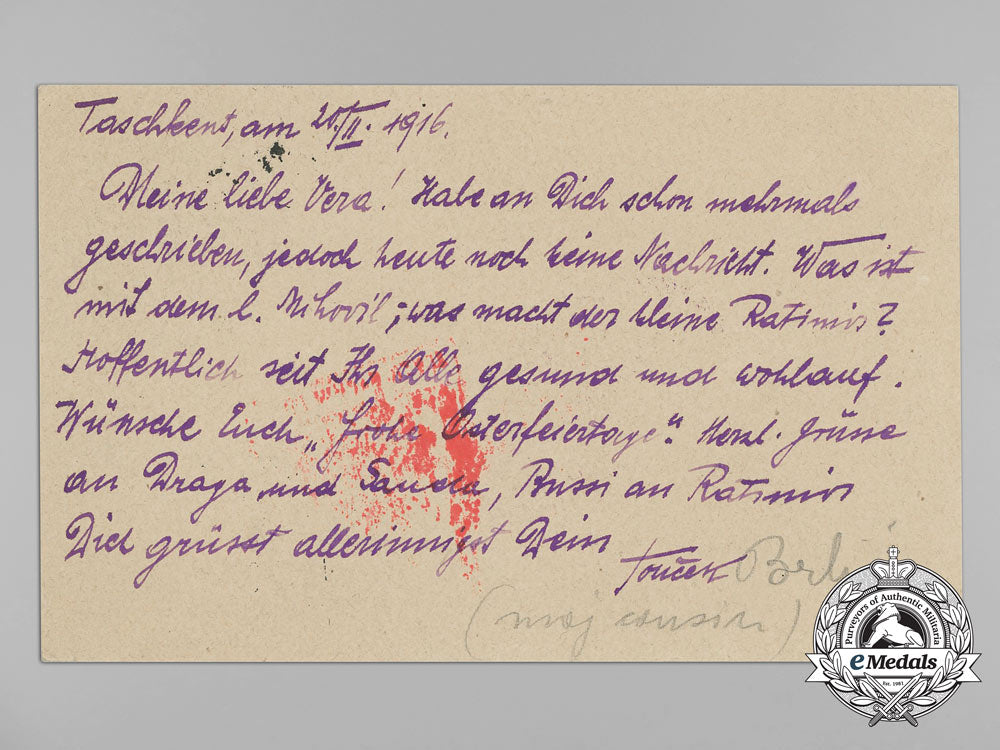 Taschkent, am 20./II. 1916.
Meine liebe Vera! Habe an Dich schon mehrmals
geschrieben, jedoch heute noch keine Nachricht. Was ist
mit dem l. Mihovil; was macht der kleine Ratimir?
Hoffentlich seit Ihr Alle gesund und wohlauf.
Wünsche Euch „frohe Osterfeiertage“. Herzl. Grüsse
an Draga und Sandra, Bussi an Ratimir
Dich grüsst allerinnigst Dein
Touček
(moj cousin)
Purveyors of Authentic Militaria
eMedals
Est. 1981